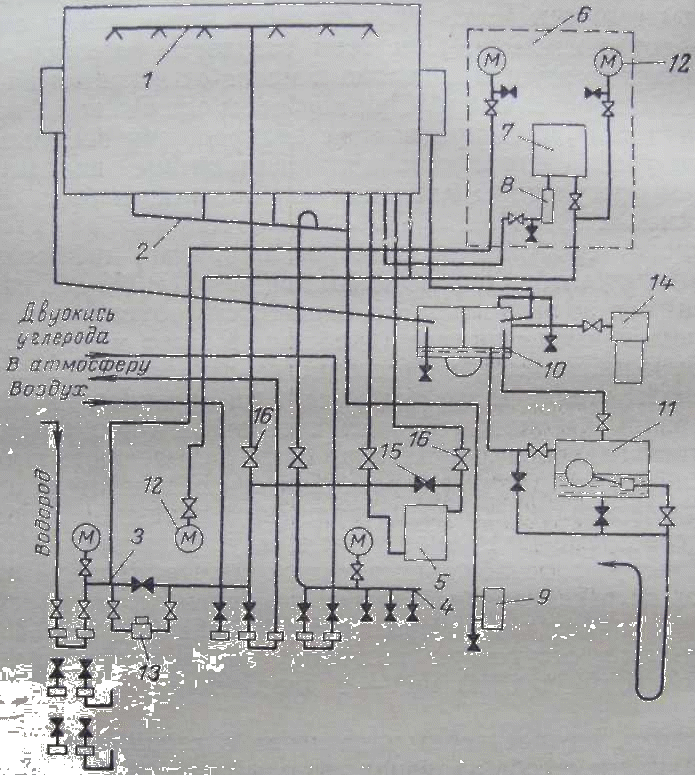 6
М
М
12
1
7
8
2
14
Двуокись
углерода
В атмосферу
Воздух
10
16
15
16
11
Водород
12
М
М
3
М
5
4
9
13